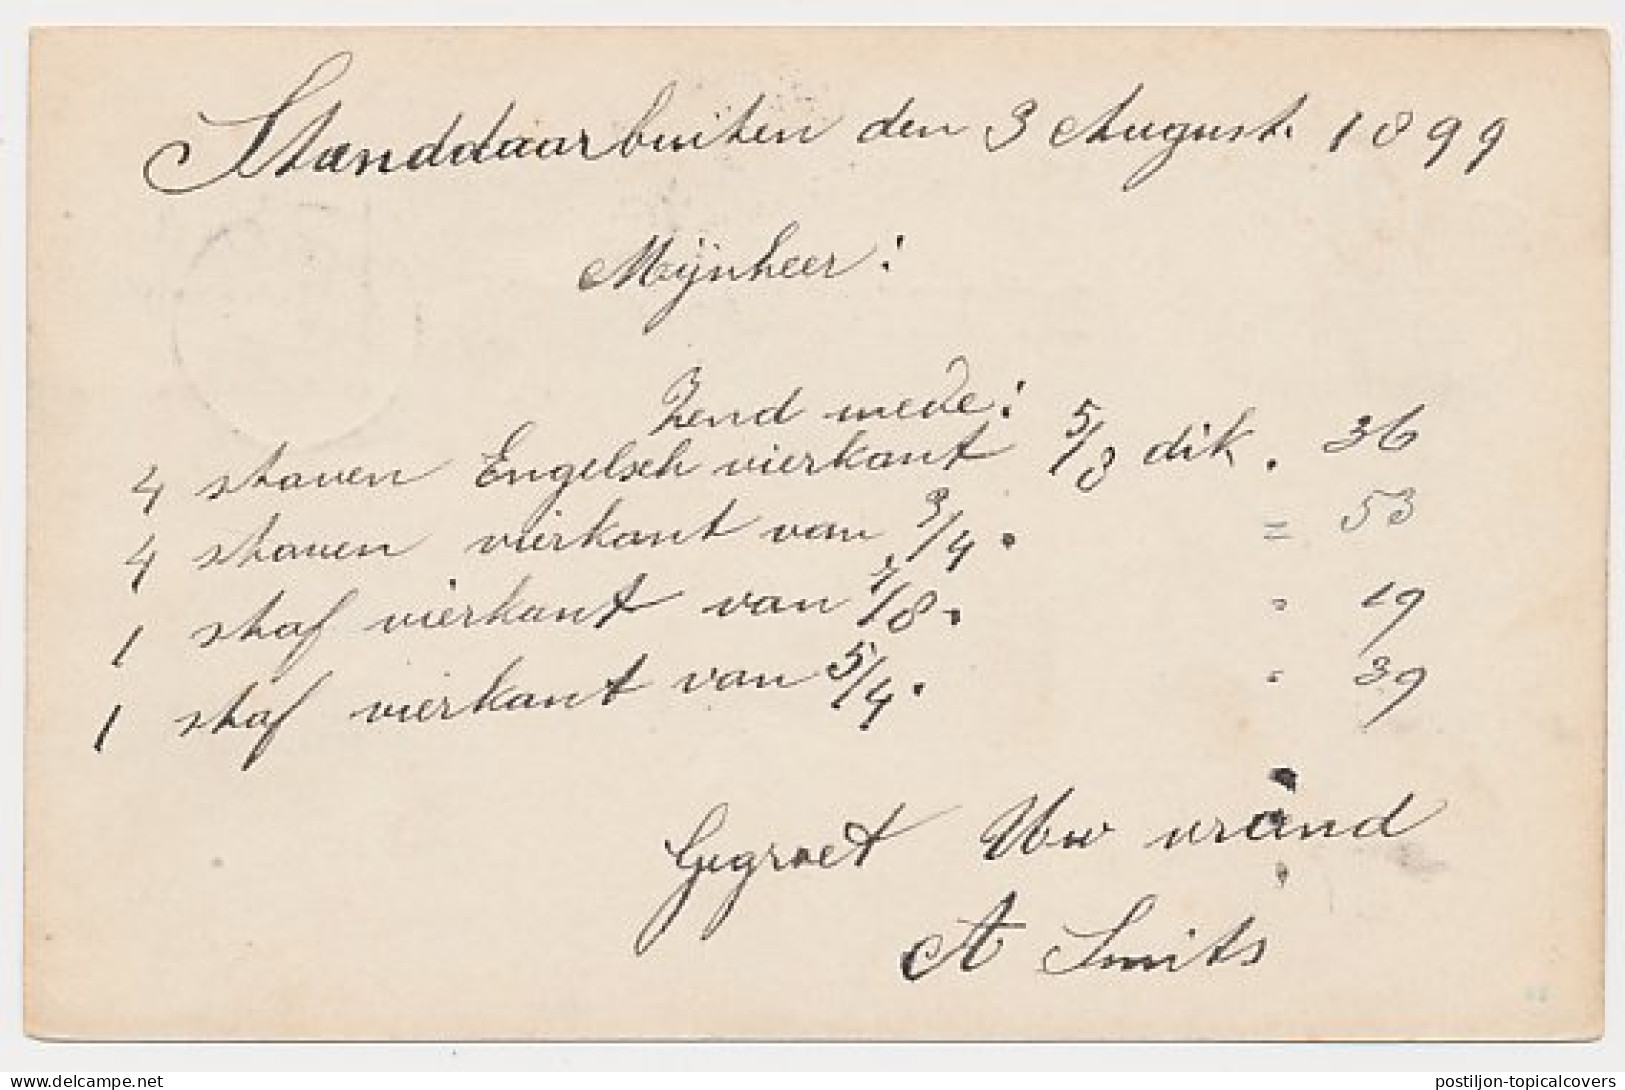 Standdaarbuiten den 3 August. 1899
Mijnheer!
Zend mede:
4 staven Engelsch vierkant 5/8 dik. 36
4 staven vierkant van 3/4. = 53
1 staf vierkant van 7/8. " 19
1 staf vierkant van 5/4. " 39
Gegroet Uw vriend
A Smits
delcampe.net
postiljon-topicalcovers